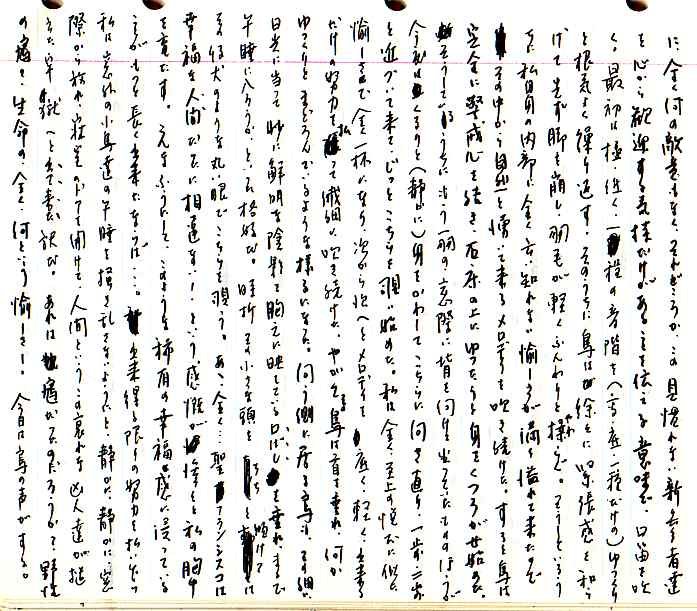 に、全く何の敵意もなく、それどころか、この見慣れない新参者達
を心から歓迎する気持だけがあることを伝える意味で、口笛を吹
く。最初は極く低く、一種の音階を(高・底一種だけの)ゆっくり
と根気よく繰り返す。そのうちに鳥は徐々に緊張感を和ら
げて先ず脚を崩し、胸毛が軽くふんわりと揺らぐ。そうしているう
ちに私自身の内部に全く言い知れない愉しさが満ち溢れて来たので
その中から自然と湧いて来るメロディを吹き続けた。すると鳥は
完全に警戒心を解き、石床の上にゆったりと身をくつろがせ始めた。
そうしているうちに、もう一羽の、窓際に背を向けていたのはうが
今度はくるりと(静かに)身をかわしてこちらに向き直り、一歩二歩
と近づいて来て、じっとこちらを覗い始めた。私は全く至上の悦びに似た
愉しさで全く一杯になり、次から次へとメロディを、底く、軽く、出来る
だけの努力を払って繊細に吹き続けた。やがて鳥は首を垂れ、何か
ゆっくりとまどろんでいるような様子になった。向う側に居る鳥も、その細い
日光に当って妙に鮮明な陰影を胸元に映しているくちばしを垂れ、まるで
午睡に入ろうか、といった格好だ。時折、その小さな頭を傾けて
まるで仔犬のような丸い眼でこちらを覗う。ああ、全く…聖フランシスコは
幸福な人間だったに相違ない!という感慨が惨々と私の胸中
を充たす。こんなふうにして、このような稀有の幸福感に浸っている
ことがもっと長く出来たならば…。出来得る限りの努力を払いなが
私は窓外の小鳥達の午睡を掻き乱さないようにと静かに、静かに窓
際から
の痛さ、生命の、全く、何という愉しさ! 今日は鳥の声がする。